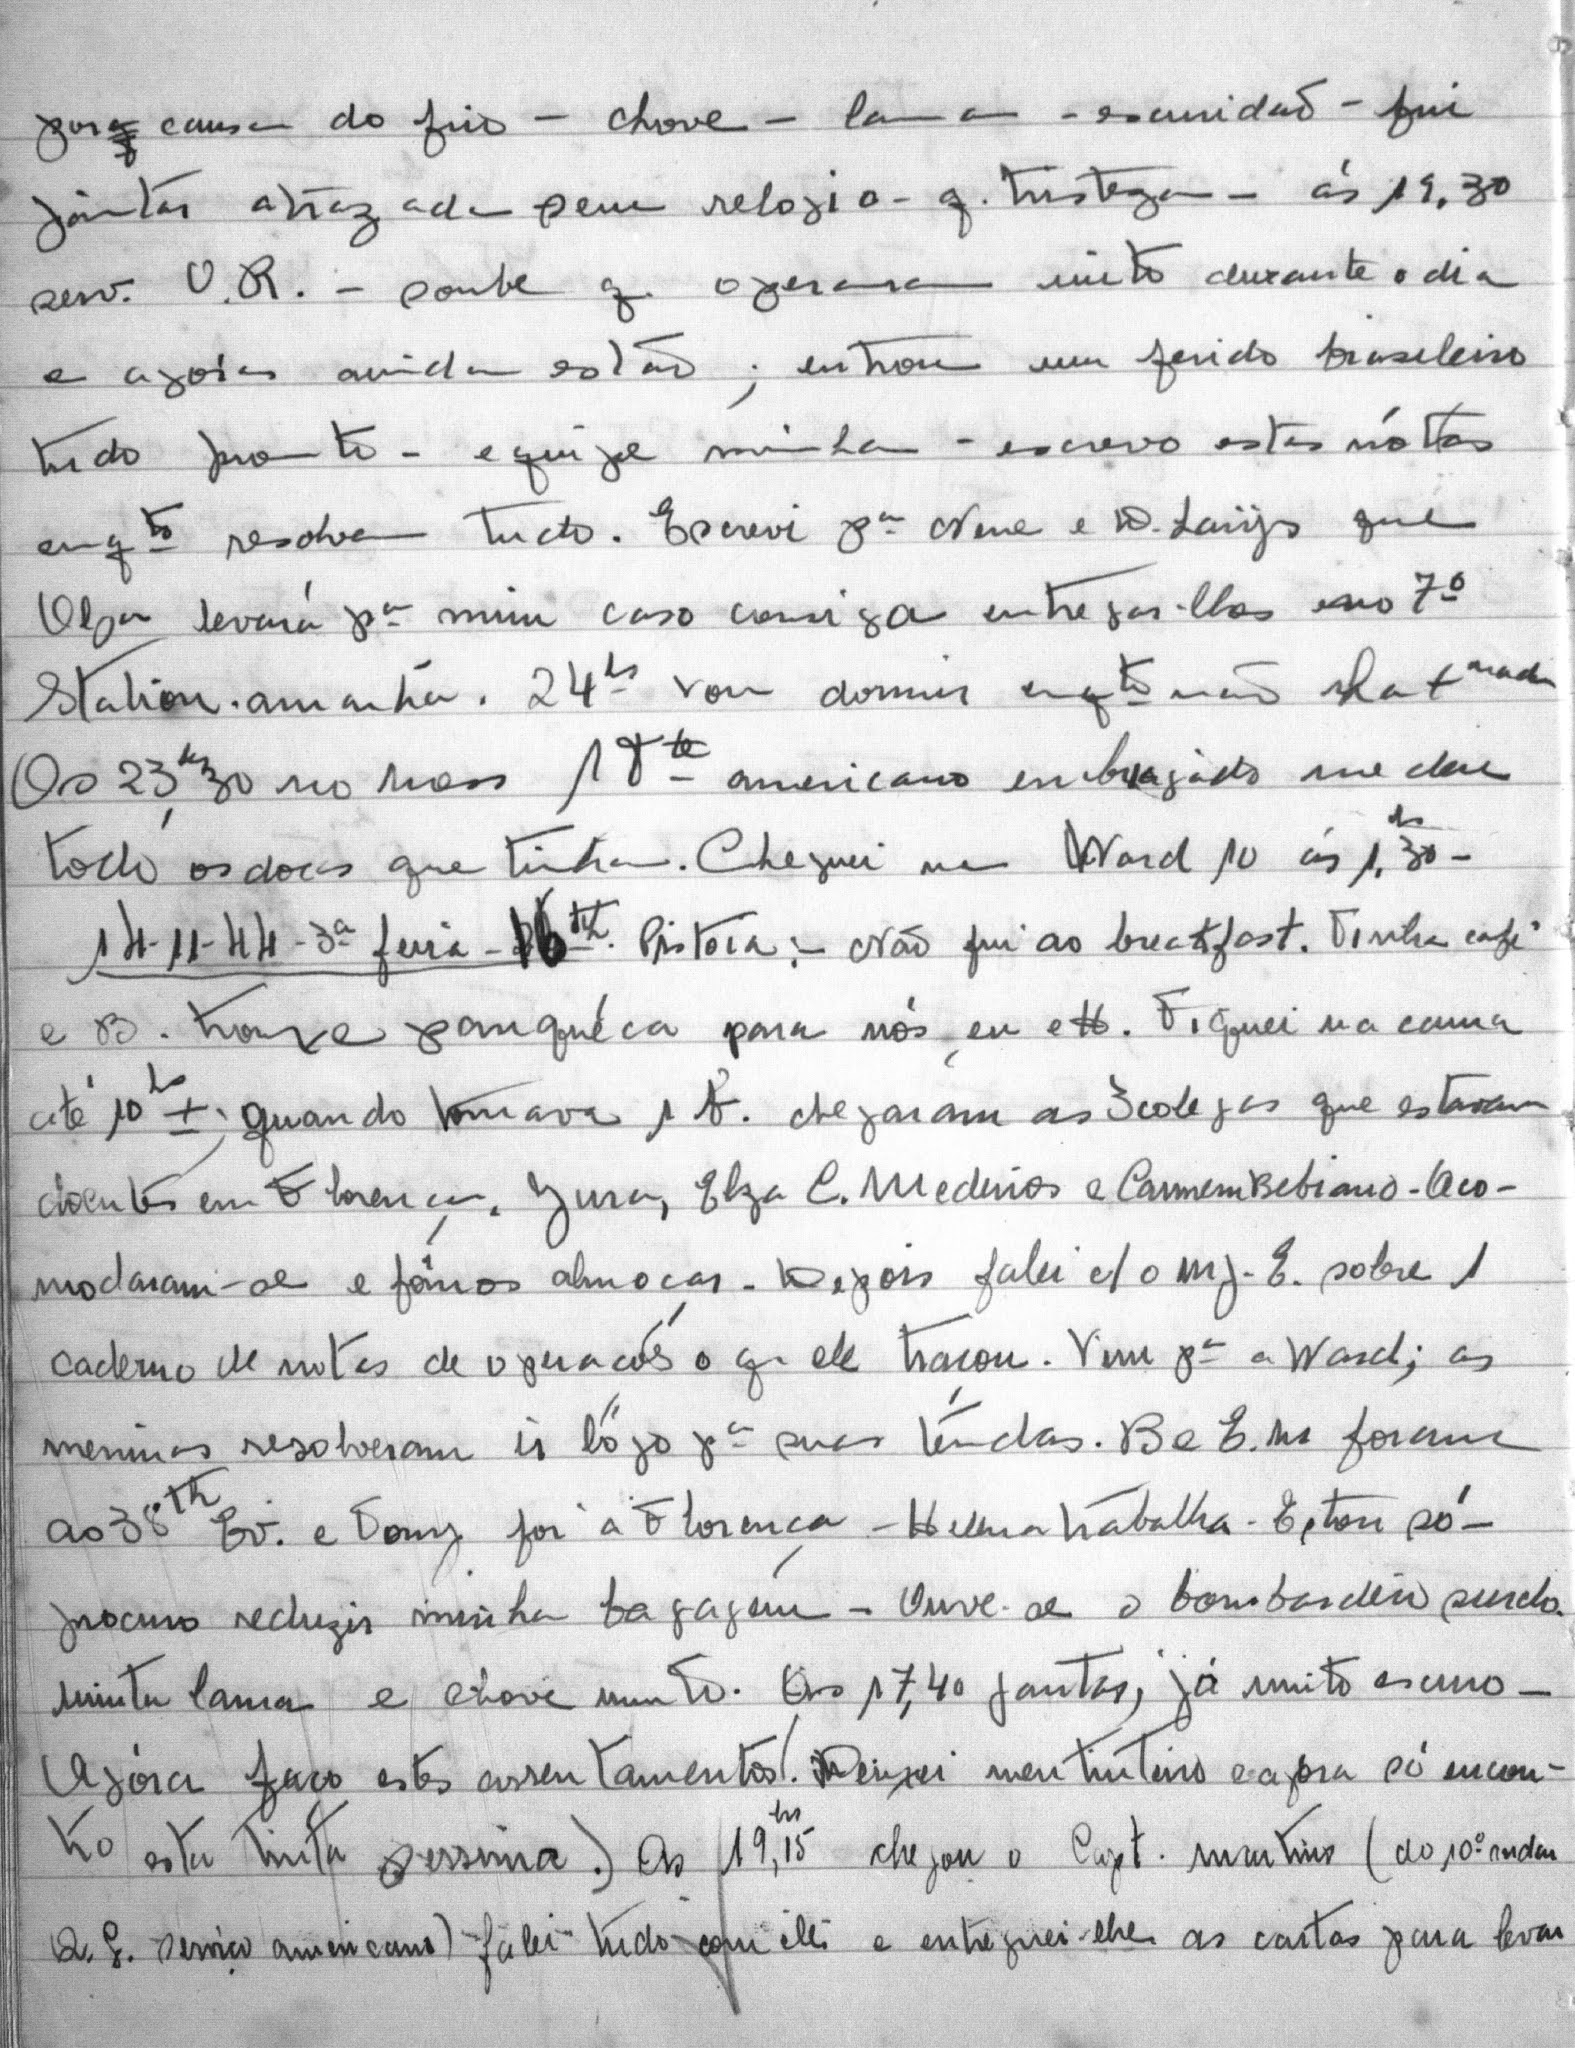 por causa do frio - chove - lama - escuridaõ - fui
jantar atrazada sem relogio - q. tristeza - ás 19,30
serv. O.R. - soube q. operaram mito durante o dia
e agóra ainda estão ; entrou um ferido brasileiro
tudo pronto - equipe minha - escrevo estas nótas
enqto resolvem tudo. Escrevi pa Nene e D. que
Olga levará pa mim caso consiga entregar-lhas no 7º
Station. amanhã. 24hs vou dormir enqto naõ ha + nada
As 23hs,30 no mess 1 Tte americano embriagado me deu
todo os doces que tinha. Cheguei na Ward 10 ás 1,hs30 -
14-11-44 - 3a feira - 16th. Pistoia :- Não fui ao breakfast. Tinha café
e B. trouxe panquéca para nós, eu e H. Fiquei na cama
até 10hs ±; quando tomava 1 b. chegaram as 3 colegas que estavam
doentes em Florença, Jura, Elza C. Medeiros e Carmem Bebiano - Aco-
modaram-se e fômos almoçar. Depois falei c/ o Mj. E. sobre 1
caderno de notas de operaçoẽs o q. ele traçou. Vim pa a Ward; as
meninas resolveram ir lógo pa suas téndas. B e E.M foram
ao 38th Ev. e Tomy foi á Florença - Helena trabalha - Estou só -
procuro reduzir minha bagagem - Ouve-se o bombardeio surdo.
muita lama e chove muito. As 17,40 jantar, já muito escuro -
Agóra faço estes assentamentos! Deixei meu tinteiro e agora só encon-
tro esta tinta pessima.) As 19,hs15 chegou o Capt. Martins (do 10º andar
Q.G. serviço americano) falei tudo com êle e entreguei-lhe as cartas para levar